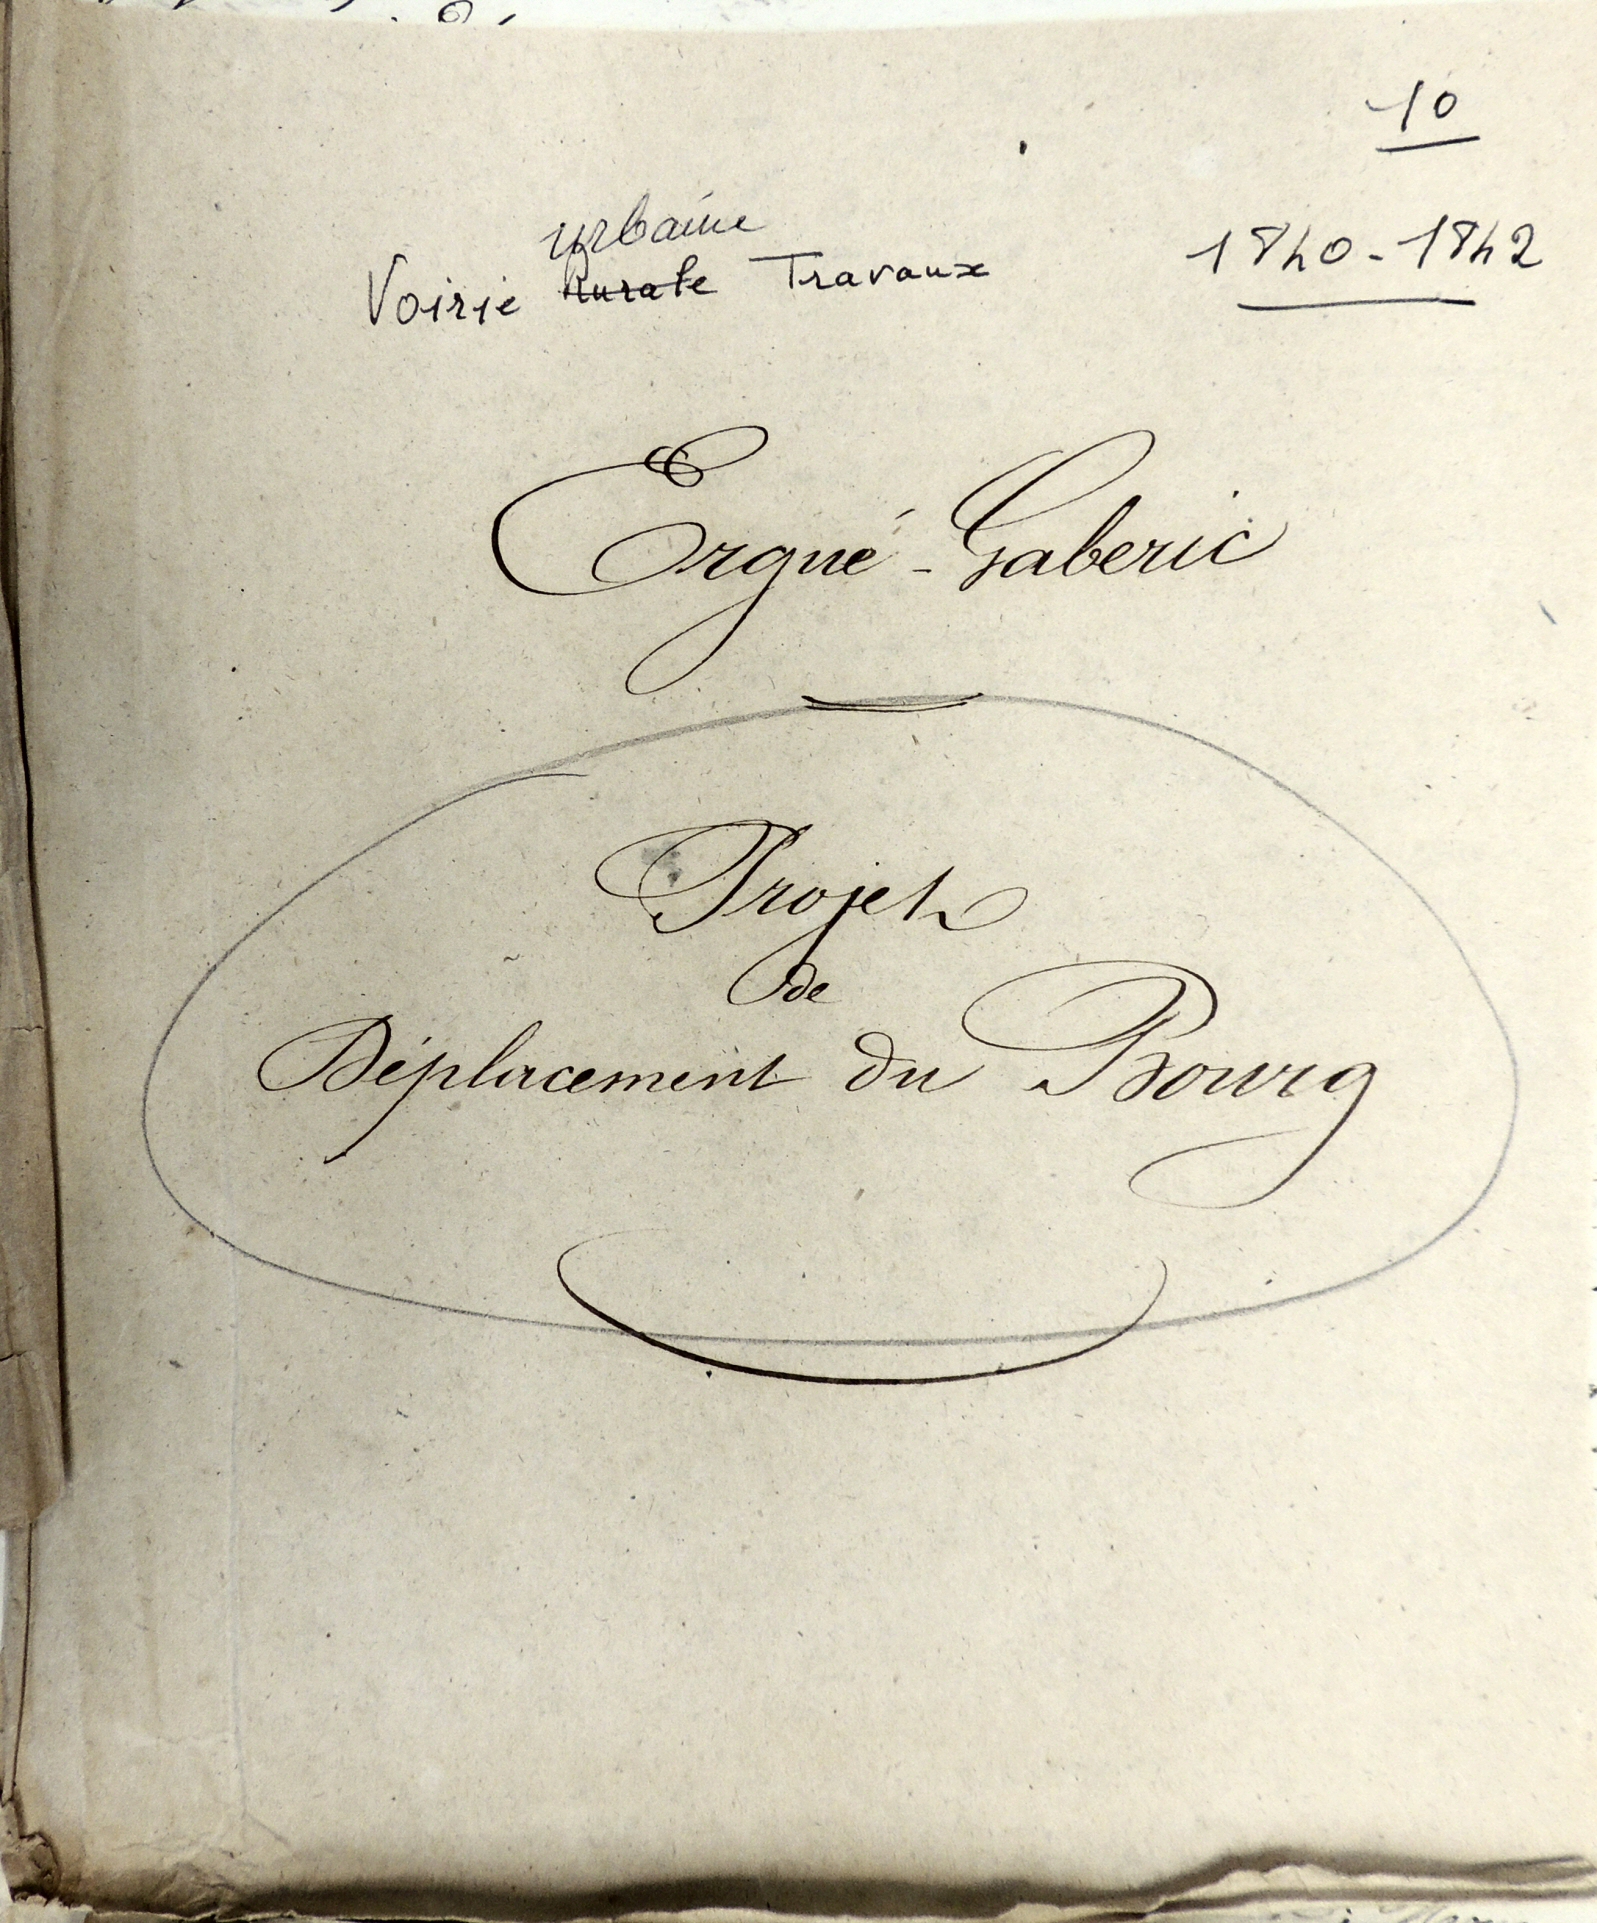 10
urbaine
Voirie Rurale Travaux 1840-1842
Ergué-Gaberic
Projet
de
Déplacement du Bourg